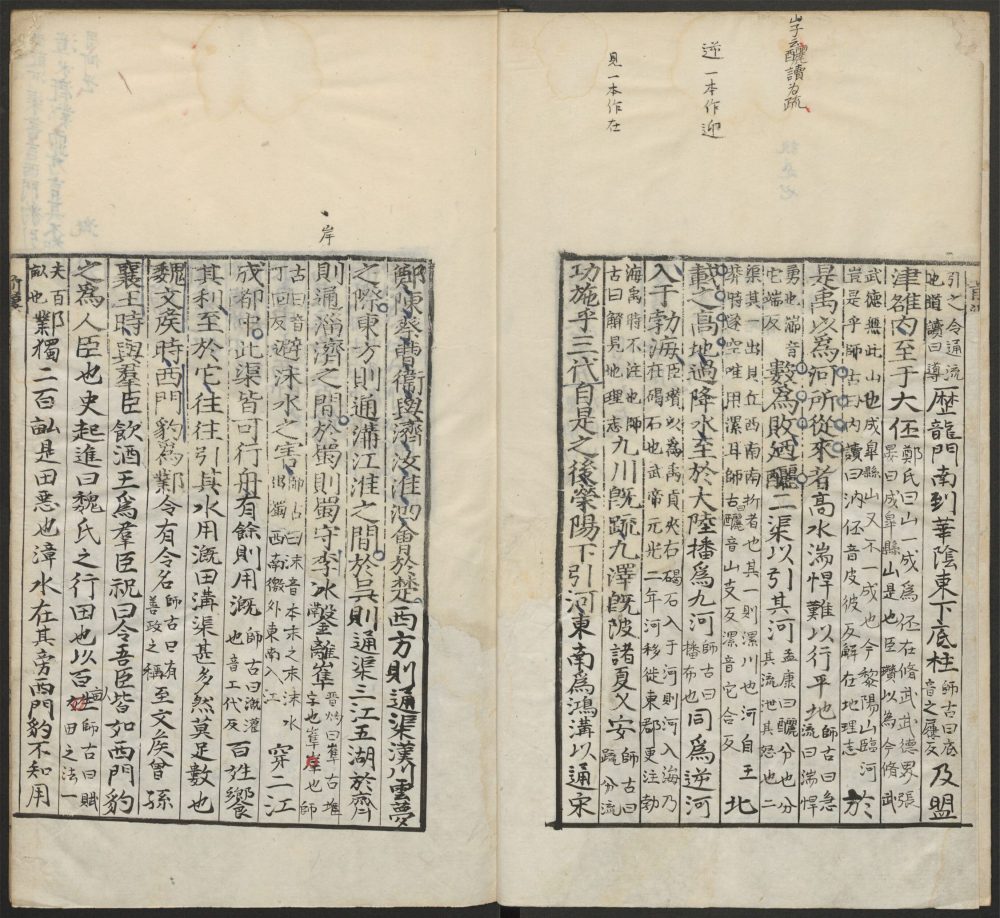 崋子云釃讀為疏
逆一本作迎
見一本作在
引之令通流
地道讀曰導
歷龍門南到華陰東下底柱
師古曰底
音之履反
及盟
津雒內至于大伾
鄭氏曰山一成為伾在脩武武德界張
晏曰成皋縣山是也臣瓚以為今脩武
武德無此山也成皋縣山又不一成也今黎陽山臨河
豈是乎師古曰內讀曰汭伾音皮彼反解在地理志
於
是禹以為河所從來者高水湍悍難以行平地
師古曰急
流曰湍悍
勇也湍音
它端反
數為敗迺釃二渠以引其河
孟康曰釃分也分
其流泄其怒也二
渠其一出貝丘西南南折者也其一則漯川也河自王
莽時遂空唯用漯耳師古曰釃音山支反漯音它合反
北
載之高地過降水至於大陸播為九河
師古曰
播布也
同為逆河
入于勃海
臣瓚以為禹貢夾右碣石入于河則河入海乃
在碣石也武帝元光二年河移徙東郡更注勃
海禹時不注也師
古曰解見地理志
九川既疏九澤既陂諸夏乂安
師古曰
疏分流
功施乎三代自是之後滎陽下引河東南為鴻溝以通宋
岸
鄭陳蔡曹衛與濟汝淮泗會於楚西方則通渠漢川雲夢
之際東方則通溝江淮之間於吳則通渠三江五湖於齊
則通淄濟之間於蜀則蜀守李冰鑿離㠑
晉灼曰㠑古堆
字也㠑岸也師
古曰音
丁回反
避沫水之害
師古曰沫音本末之末沫水
出蜀西南徼外東南入江
穿二江
成都中此渠皆可行舟有餘則用溉
師古曰溉灌
也音工代反
百姓饗
其利至於它往往引其水用溉田溝渠甚多然莫足數也
魏文侯時西門豹為鄴令有令名
師古曰有
善政之稱
至文侯曾孫
襄王時與羣臣飲酒王為羣臣祝曰令吾臣皆如西門豹
之為人臣也史起進曰魏氏之行田也以百畝
師古曰賦
田之法一
夫百
畝也
鄴獨二百畝是田惡也漳水在其旁西門豹不知用